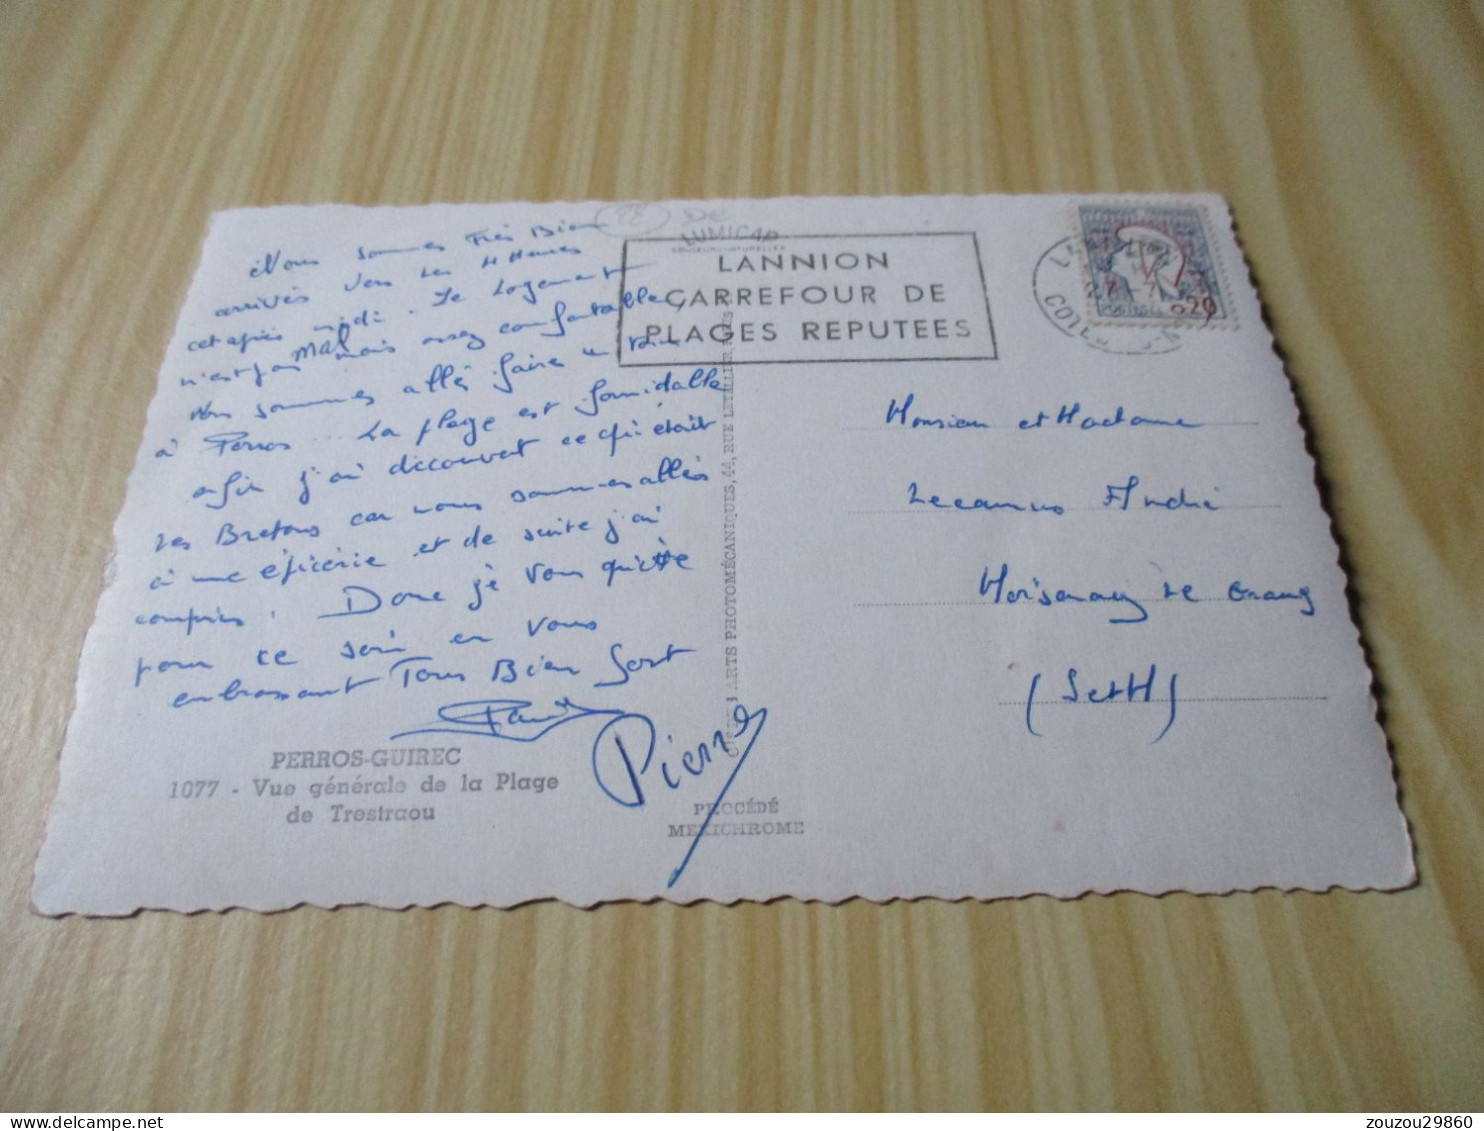 Nous sommes Très Bien
arrivés vers les 4 Heures
cet après midi. Le Logement
n'est pas mal mais assez confortable,
Nous sommes allés faire un tour
à Perros... La plage est formidable
enfin j'ai découvert ce qu'était
les Bretons car nous sommes allés
à une épicerie et de suite j'ai
compris. Donc je vous quitte
pour ce soir en vous
embrassant Tous Bien fort
Pierre
PERROS-GUIREC
1077 - Vue générale de la Plage
de Trestraou
22
LUMICAP
LANNION
CARREFOUR DE
PLAGES REPUTEES
ARTS PHOTOMÉCANIQUES, 44, RUE LETELLIER,
PROCÉDÉ
MEXICHROME
0,20
POSTES
Monsieur et Madame
Lecamus André
Moisenay le Grand
(SetM)
zouzou29860